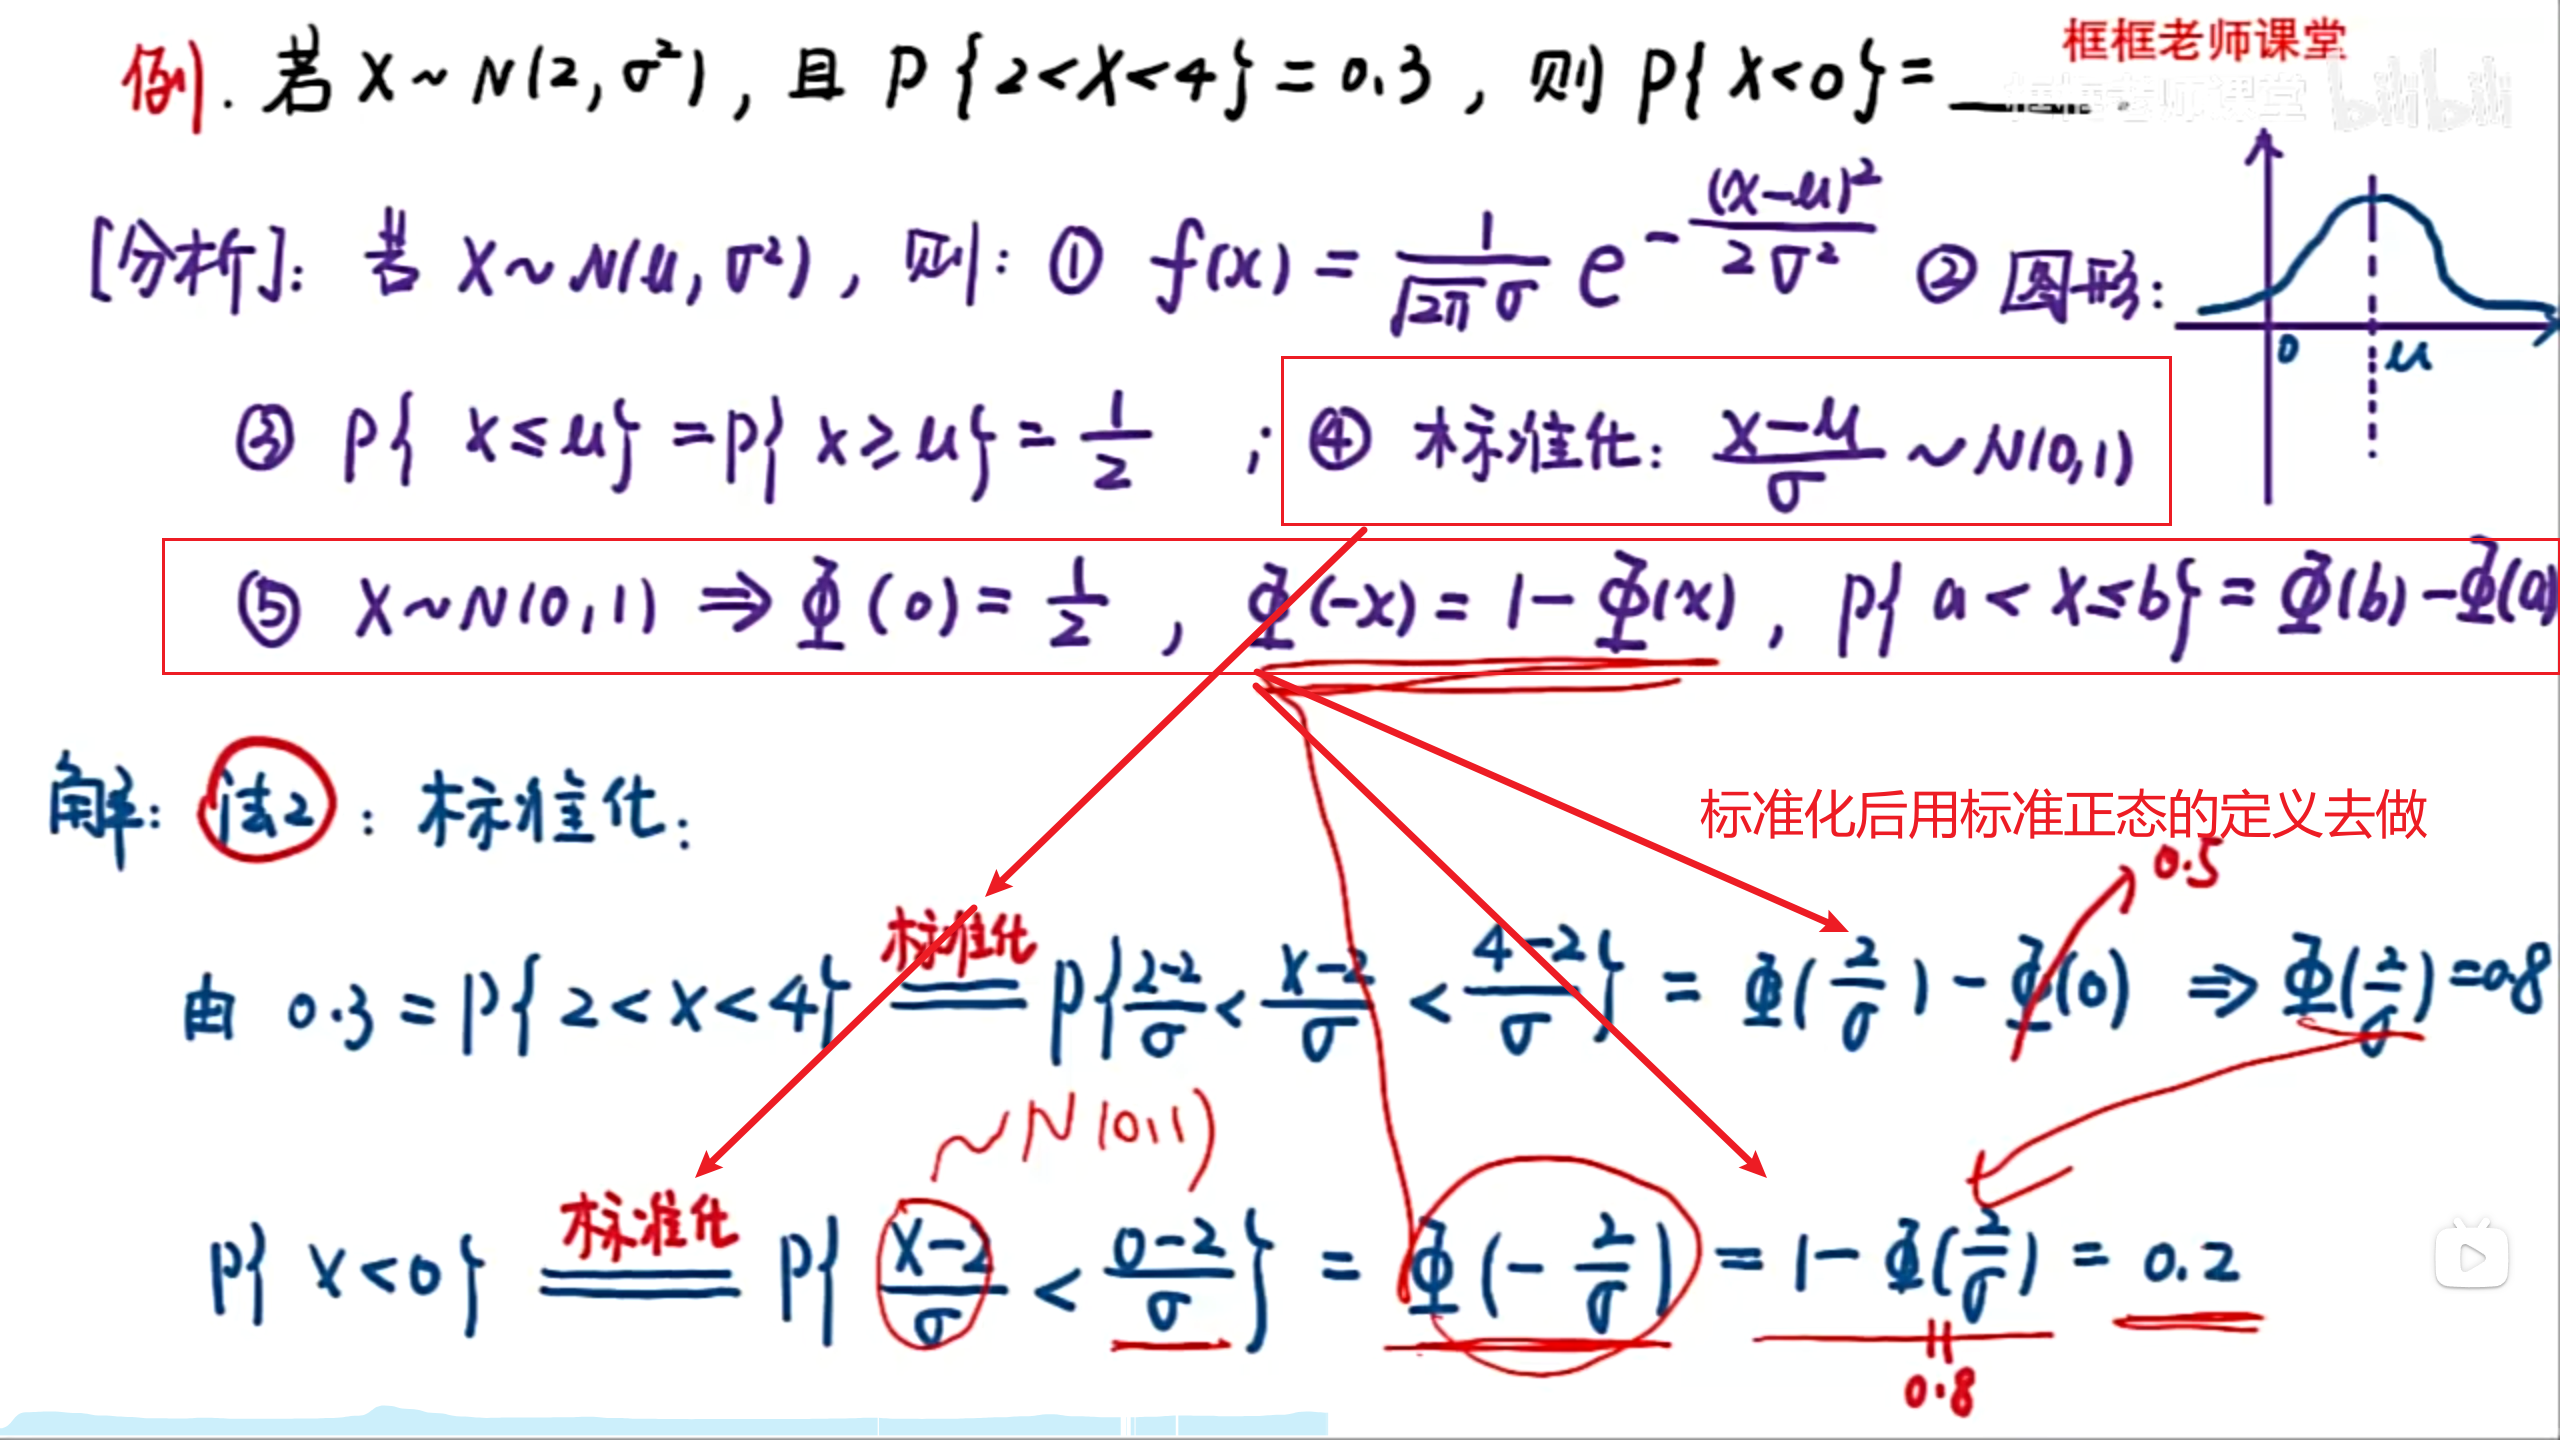 框框老师课堂
例. 若 X~N(2, σ²), 且 P{2<X<4}=0.3, 则 P{X<0}=____.
框框老师课堂 bilibili
[分析]: 若 X~N(μ, σ²), 则: ① f(x) = 1/(√2π σ) e^(-(x-μ)²/(2σ²)) ② 图形:
0 μ
③ P{X≤μ}=P{X≥μ}=1/2 ; ④ 标准化: (X-μ)/σ ~N(0,1)
⑤ X~N(0,1) ⇒ Φ(0)=1/2, Φ(-x)=1-Φ(x), P{a<X≤b}=Φ(b)-Φ(a)
解: 法2: 标准化:
标准化后用标准正态的定义去做
0.5
标准化
由 0.3=P{2<X<4} = P{(2-2)/σ < (X-2)/σ < (4-2)/σ} = Φ(2/σ)-Φ(0) ⇒ Φ(2/σ)=0.8
~N(0,1)
标准化
P{X<0} = P{(X-2)/σ < (0-2)/σ} = Φ(-2/σ) = 1-Φ(2/σ) = 0.2
0.8